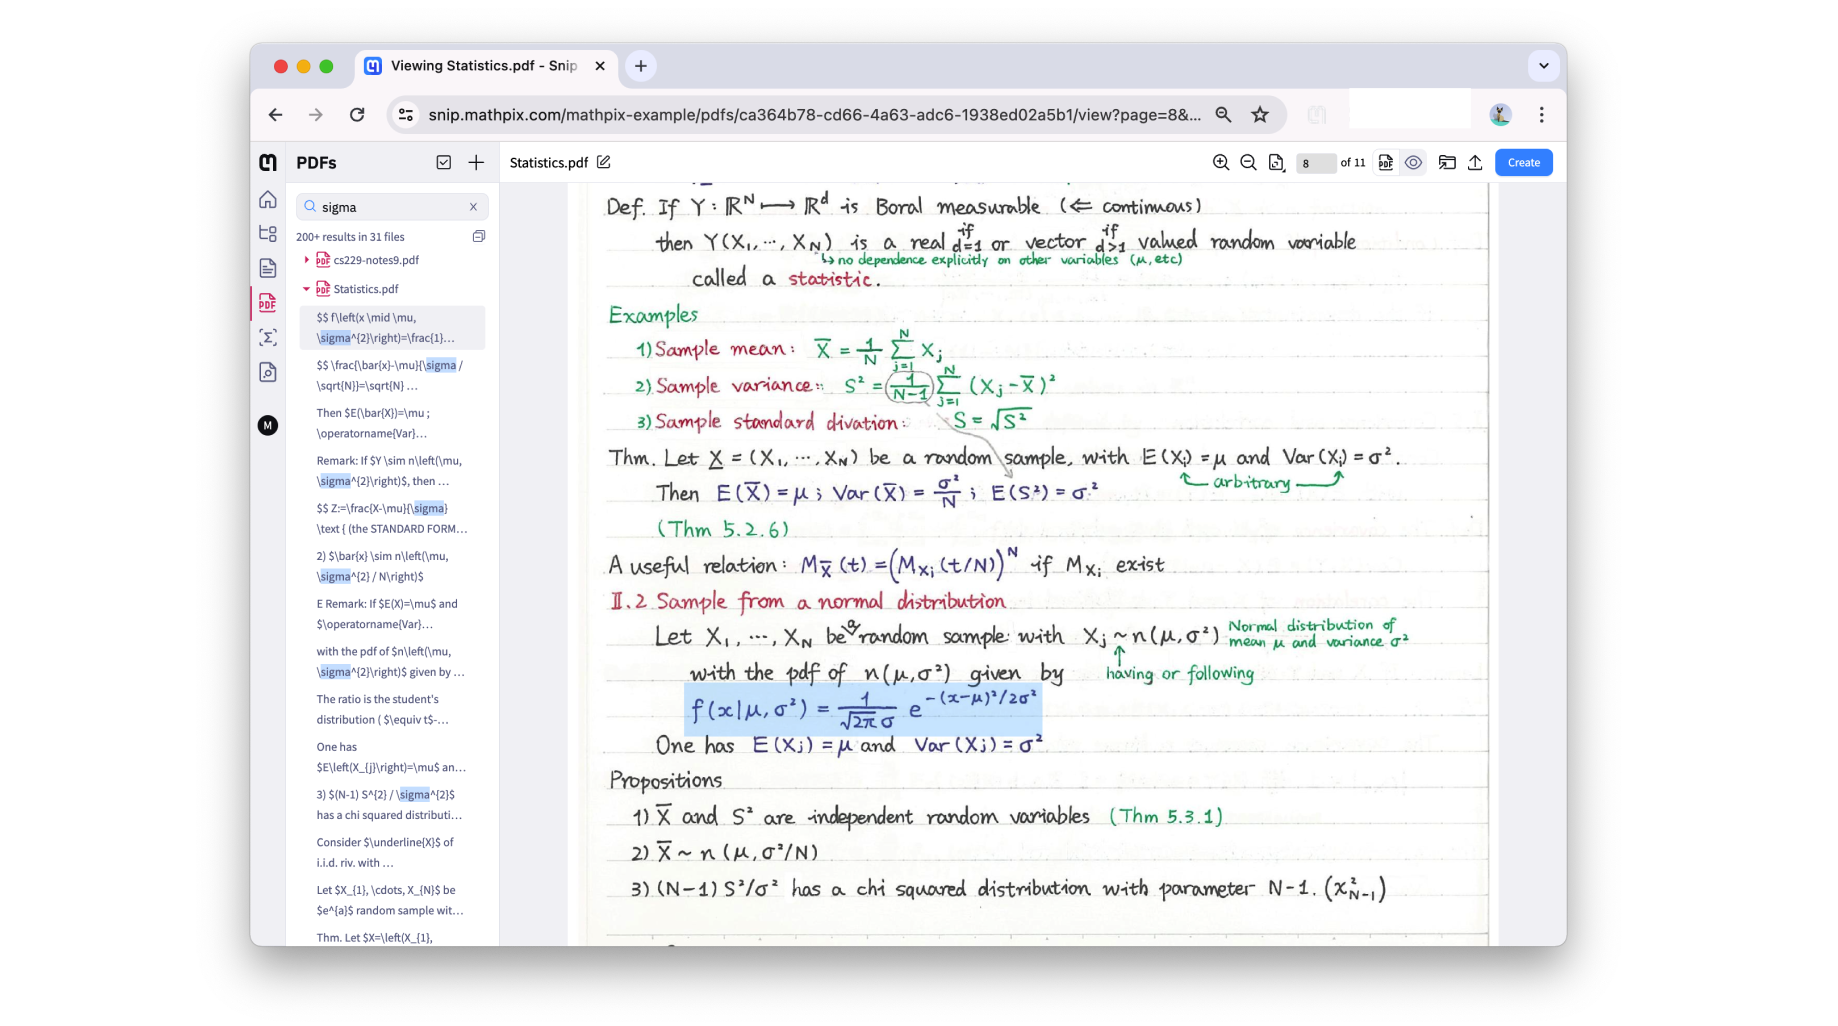 Viewing Statistics.pdf - Snip
snip.mathpix.com/mathpix-example/pdfs/ca364b78-cd66-4a63-adc6-1938ed02a5b1/view?page=8&...
PDFs
Statistics.pdf
8 of 11
PDF
Create
sigma
200+ results in 31 files
PDF cs229-notes9.pdf
PDF Statistics.pdf
PDF
M
$$ f\left(x \mid \mu,
\sigma^{2}\right)=\frac{1}...
$$ \frac{\bar{x}-\mu}{\sigma /
\sqrt{N}}=\sqrt{N} ...
Then $E(\bar{X})=\mu ;
\operatorname{Var}...
Remark: If $Y \sim n\left(\mu,
\sigma^{2}\right)$, then ...
$$ Z:=\frac{X-\mu}{\sigma}
\text { (the STANDARD FORM...
2) $\bar{x} \sim n\left(\mu,
\sigma^{2} / N\right)$
E Remark: If $E(X)=\mu$ and
$\operatorname{Var}...
with the pdf of $n\left(\mu,
\sigma^{2}\right)$ given by ...
The ratio is the student's
distribution ( $\equiv t$-...
One has
$E\left(X_{j}\right)=\mu$ an...
3) $(N-1) S^{2} / \sigma^{2}$
has a chi squared distributi...
Consider $\underline{X}$ of
i.i.d. riv. with ...
Let $X_{1}, \cdots, X_{N}$ be
$e^{a}$ random sample wit...
Thm. Let $X=\left(X_{1},
Def. If Y : ℝᴺ ⟼ ℝᵈ is Boral measurable (⇐ continuous)
then Y(X₁, ⋯, X_N) is a real if d=1 or vector if d>1 valued random variable
↳ no dependence explicitly on other variables (μ, etc)
called a statistic.
Examples
1) Sample mean: X̅ = 1/N ∑_{j=1}^{N} X_j
2) Sample variance: S² = 1/(N-1) ∑_{j=1}^{N} (X_j - X̅)²
3) Sample standard divation: S = √S²
Thm. Let X̲ = (X₁, ⋯, X_N) be a random sample, with E(X_i) = μ and Var(X_i) = σ².
arbitrary
Then E(X̅) = μ ; Var(X̅) = σ²/N ; E(S²) = σ²
(Thm 5.2.6)
A useful relation: M_X̅(t) = (M_{X_i}(t/N))^N if M_{X_i} exist
II.2 Sample from a normal distribution
Let X₁, ⋯, X_N be a random sample with X_j ~ n(μ, σ²) Normal distribution of
mean μ and variance σ²
with the pdf of n(μ, σ²) given by
having or following
f(x|μ, σ²) = 1/(√2π σ) e^{-(x-μ)²/2σ²}
One has E(X_j) = μ and Var(X_j) = σ²
Propositions
1) X̅ and S² are independent random variables (Thm 5.3.1)
2) X̅ ~ n(μ, σ²/N)
3) (N-1) S²/σ² has a chi squared distribution with parameter N-1. (χ²_{N-1})